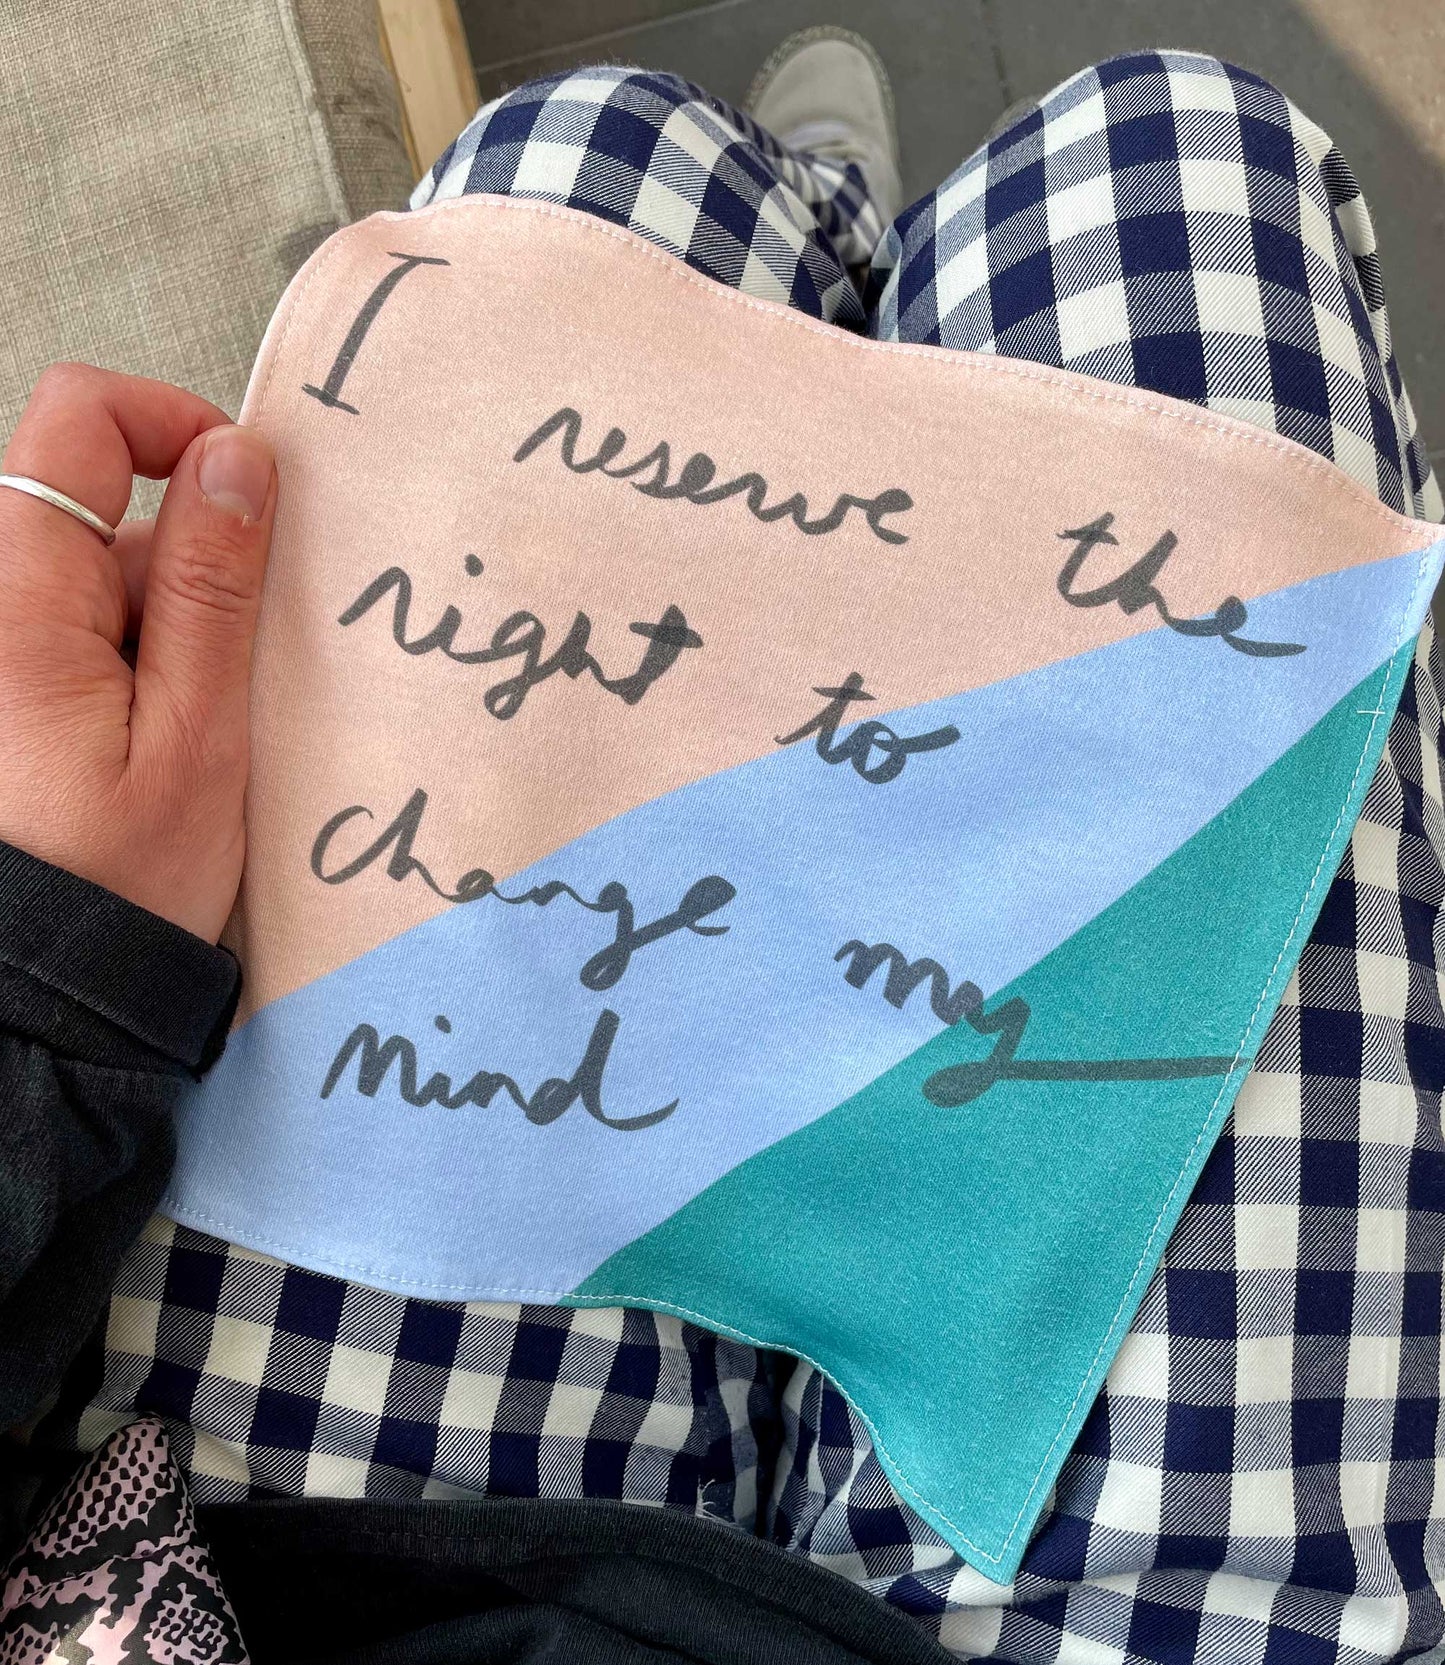 I reserve the
right to
change my
mind